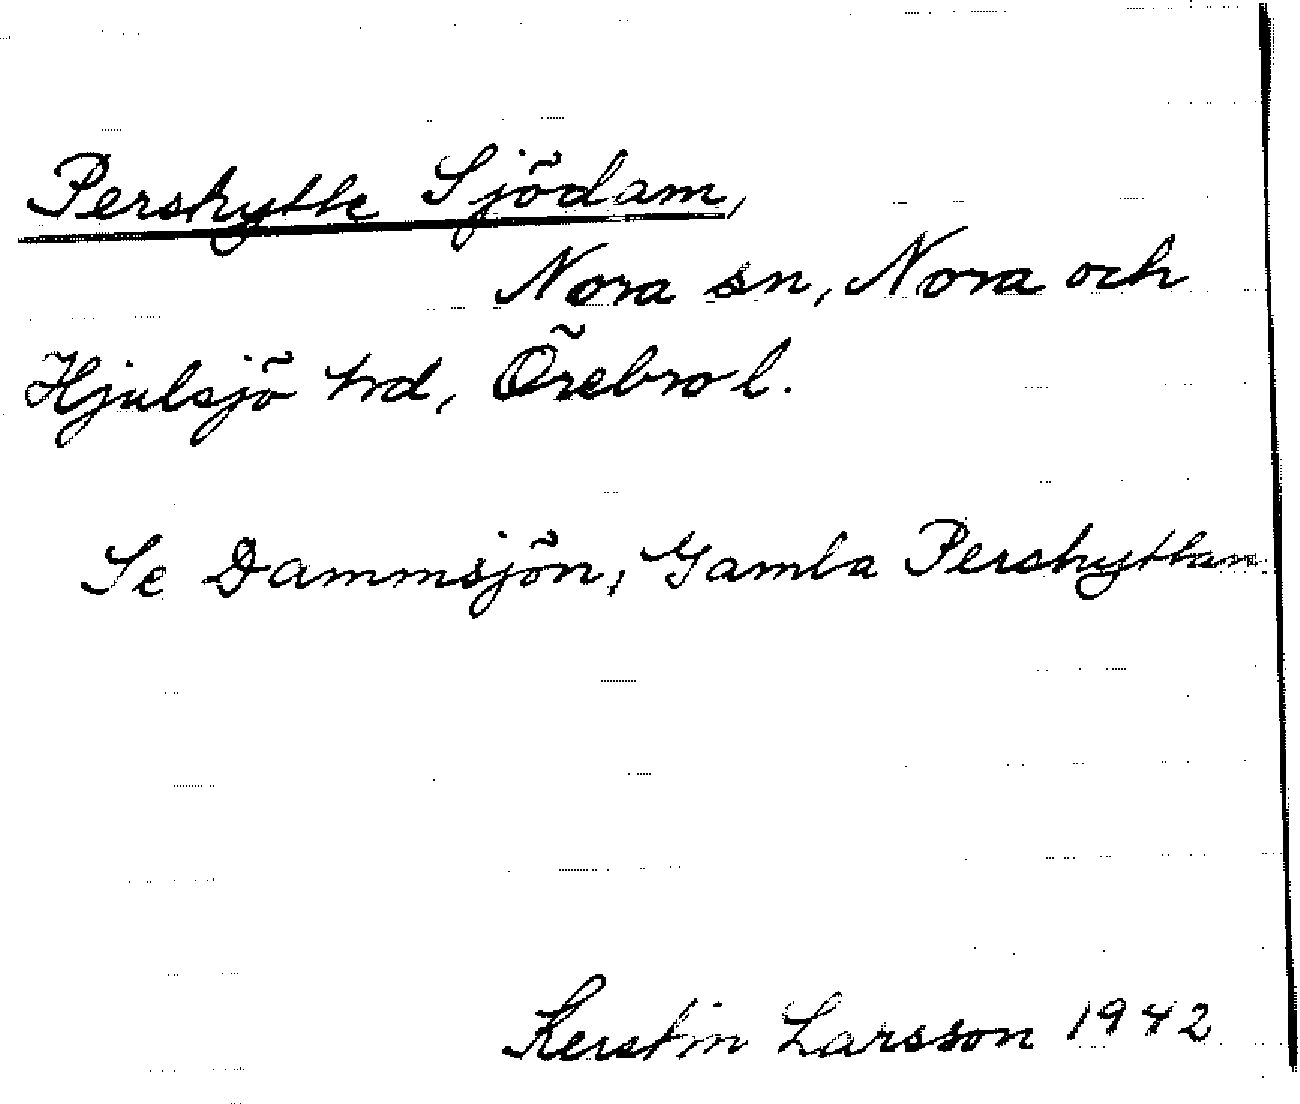 Pershytte Sjödam,
Nora sn, Nora och
Hjulsjö hrd, Örebro l.
Se Dammsjön, Gamla Pershyttan.
Kerstin Larsson 1942